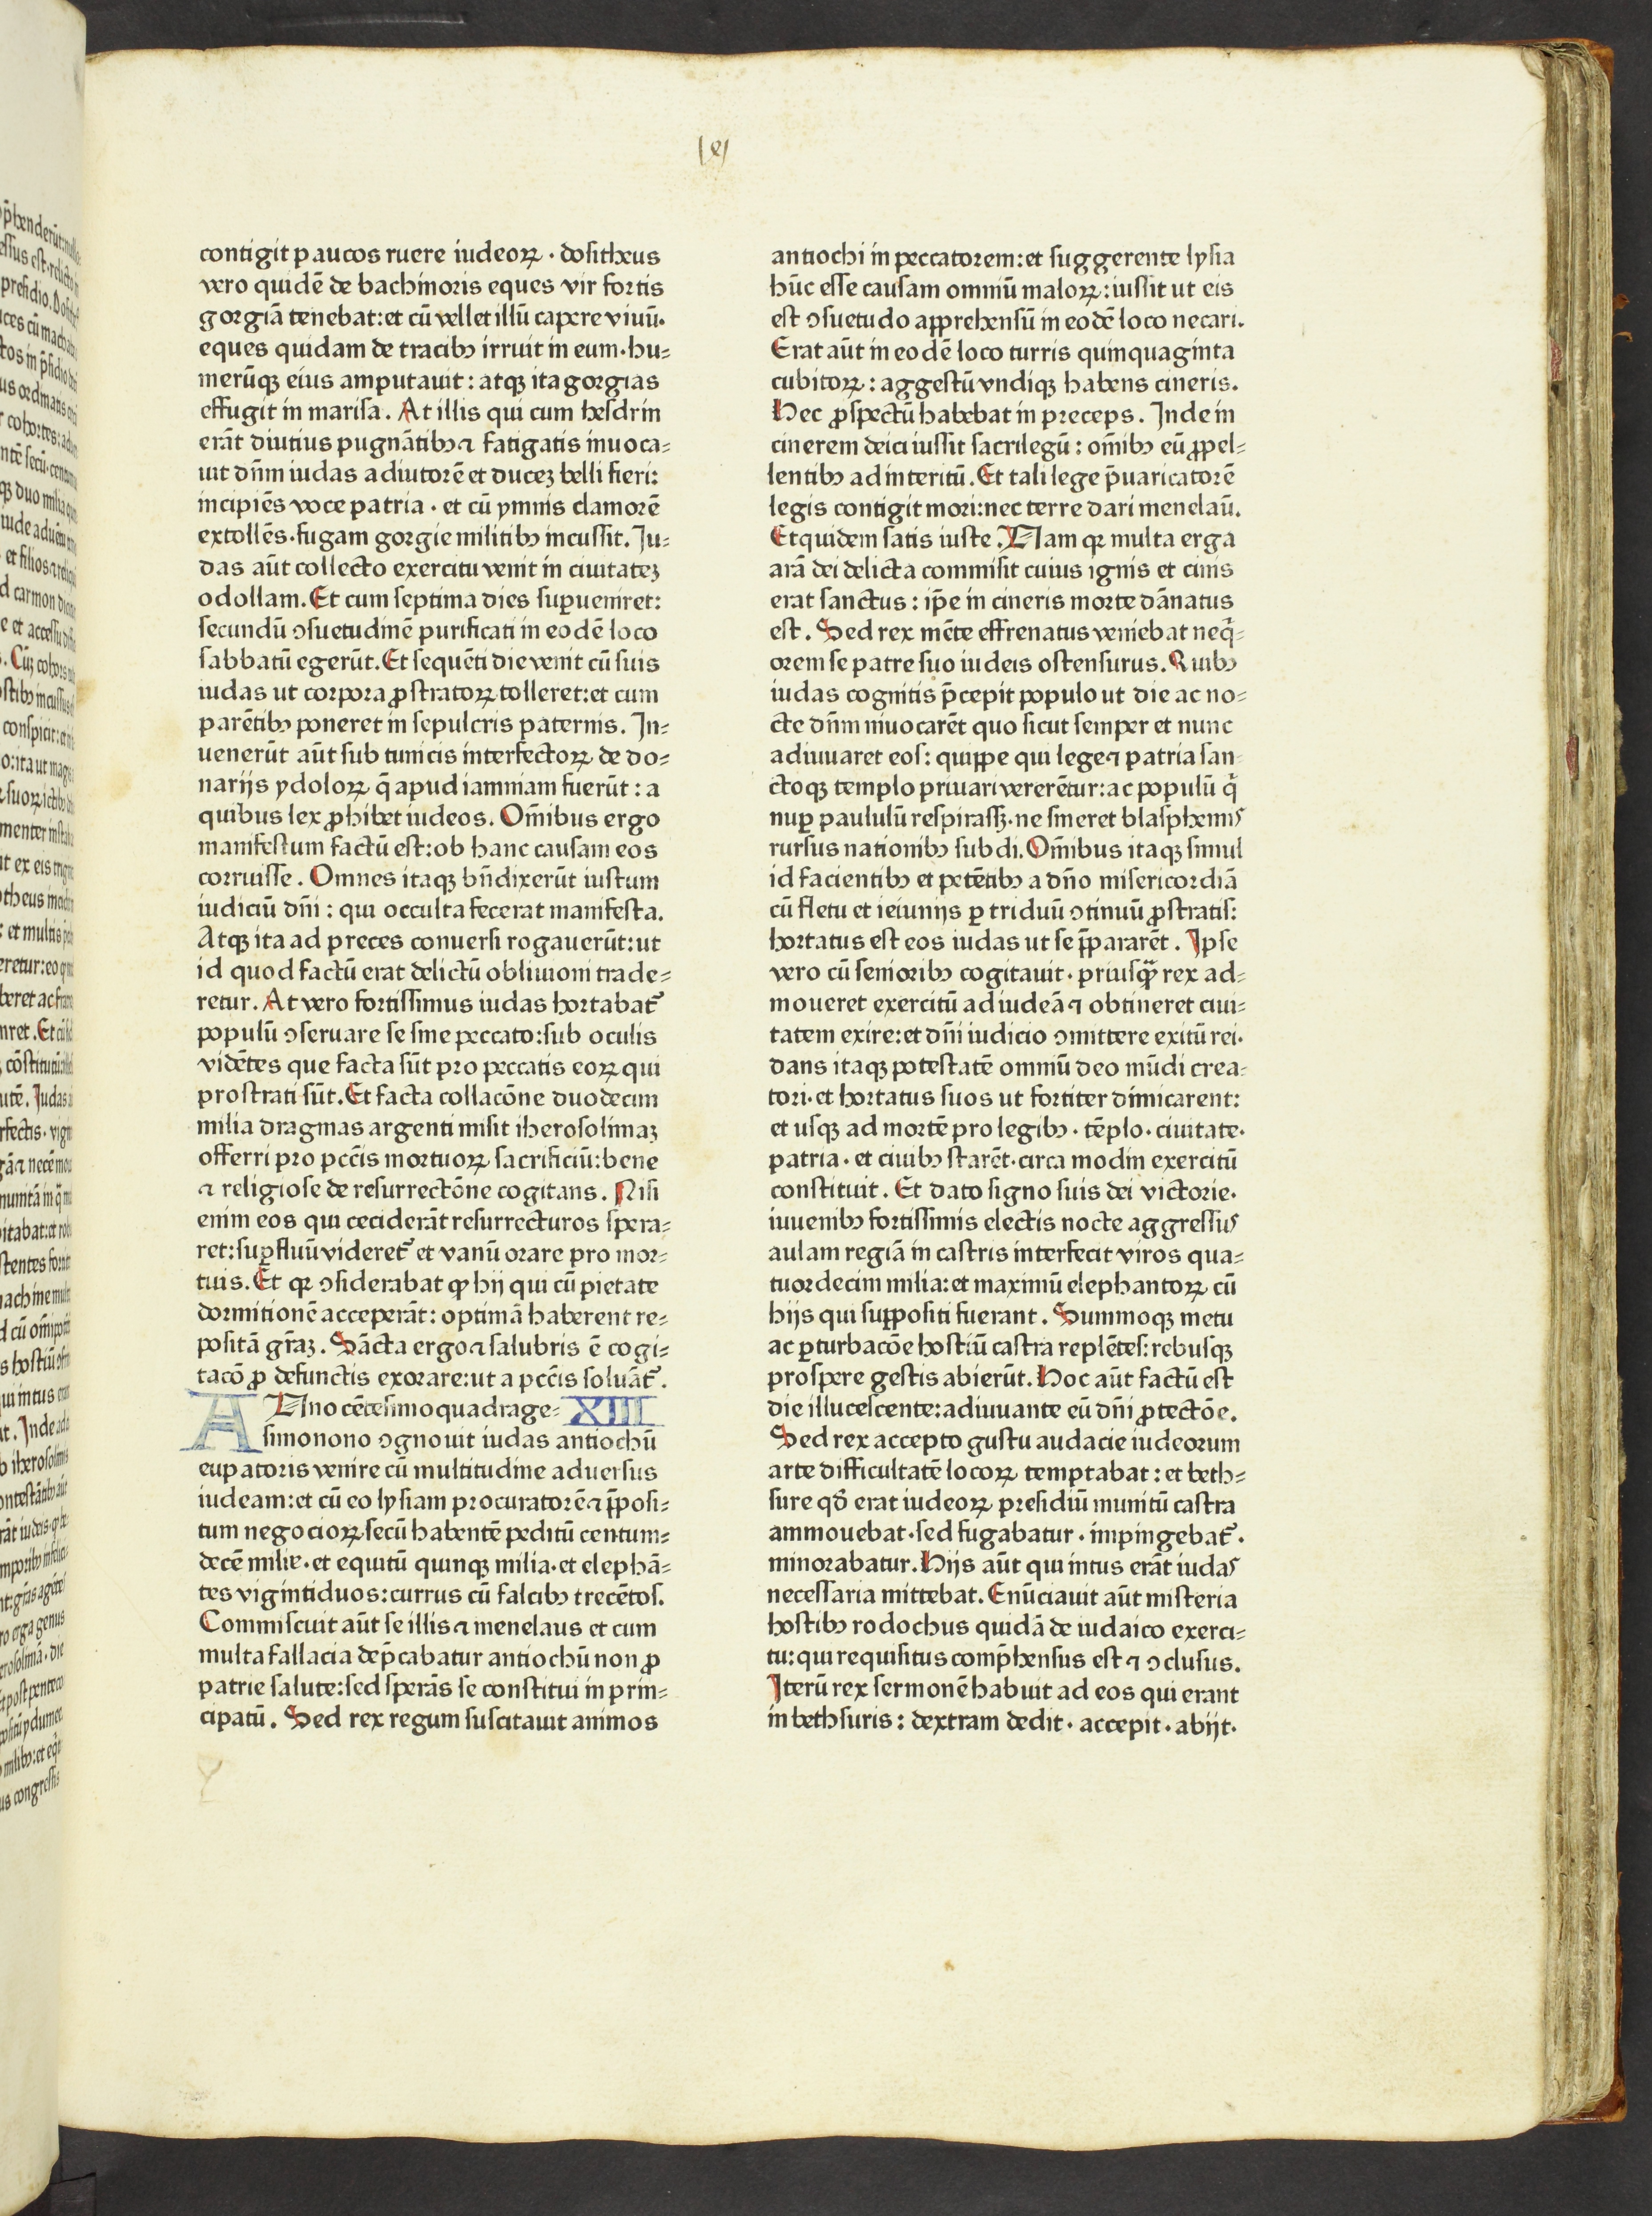 contigit paucos ruere iudeoꝝ · dositheus
vero quidē de bachinoris eques vir fortis
gorgiā tenebat: et cū vellet illū capere viuū·
eques quidam de tracibꝫ irruit in eum · hu⸗
merūqꝫ eius amputauit : atqꝫ ita gorgias
effugit in marisa . At illis qui cum hesdrin
erāt diutius pugnātibꝫ ⁊ fatigatis inuoca⸗
uit dn̄m iudas adiutorē et duceꝫ belli fieri:
incipiēs voce patria · et cū ymnis clamorē
extollēs · fugam gorgie militibꝫ incussit. Iu⸗
das aūt collecto exercitu venit in ciuitateꝫ
odollam. Et cum septima dies suꝑueniret:
secundū ↄsuetudinē purificati in eodē loco
sabbatū egerūt. Et sequēti die venit cū suis
iudas ut corpora ꝓstratoꝝ tolleret: et cum
parētibꝫ poneret in sepulcris paternis. In⸗
uenerūt aūt sub tunicis interfectoꝝ de do⸗
narijs ydoloꝝ q̄ apud iamniam fuerūt : a
quibus lex ꝓhibet iudeos. Om̄ibus ergo
manifestum factū est: ob hanc causam eos
corruisse . Omnes itaqꝫ bn̄dixerūt iustum
iudiciū dn̄i : qui occulta fecerat manifesta.
Atqꝫ ita ad preces conuersi rogauerūt: ut
id quod factū erat delictū obliuioni trade⸗
retur. At vero fortissimus iudas hortabat᷑
populū ↄseruare se sine peccato: sub oculis
vidētes que facta sūt pro peccatis eoꝝ qui
prostrati sūt. Et facta collacōne duodecim
milia dragmas argenti misit iherosolimaꝫ
offerri pro pcc̄is mortuoꝝ sacrificiū: bene
⁊ religiose de resurrectōne cogitans. Nisi
enim eos qui ceciderāt resurrecturos spera⸗
ret: suꝑfluū videret᷑ et vanū orare pro mor⸗
tuis. Et qꝛ ↄsiderabat ꝙ hij qui cū pietate
dormitionē acceperāt: optimā haberent re⸗
positā gr̄aꝫ. Sācta ergo ⁊ salubris ē cogi⸗
tacō ꝓ defunctis exorare: ut a pcc̄is soluāt᷑.
ANno cētesimo quadrage⸗ XIII
simonono ↄgnouit iudas antiochū
eupatoris venire cū multitudine aduersus
iudeam: et cū eo lysiam procuratorē ⁊ p̄posi⸗
tum negocioꝝ secū habentē peditū centum⸗
decē milie · et equitū quinqꝫ milia · et elephā⸗
tes vigintiduos: currus cū falcibꝫ trecētos.
Commiscuit aūt se illis ⁊ menelaus et cum
multa fallacia dep̄cabatur antiochū non ꝓ
patrie salute: sed sperās se constitui in prin⸗
cipatū. Sed rex regum suscitauit animos
antiochi in peccatorem: et suggerente lysia
hūc esse causam omniū maloꝝ: iussit ut eis
est ↄsuetudo apprehensū in eodē loco necari.
Erat aūt in eodē loco turris quinquaginta
cubitoꝝ : aggestū vndiqꝫ habens cineris.
Hec ꝓspectū habebat in preceps. Inde in
cinerem deici iussit sacrilegū : om̄ibꝫ eū ꝓpel⸗
lentibꝫ ad interitū. Et tali lege p̄uaricatorē
legis contigit mori: nec terre dari menelaū.
Et quidem satis iuste. Nam qꝛ multa erga
arā dei delicta commisit cuius ignis et cinis
erat sanctus : ip̄e in cineris morte dānatus
est. Sed rex mēte effrenatus veniebat neq̄⸗
orem se patre suo iudeis ostensurus. Quibꝫ
iudas cognitis p̄cepit populo ut die ac no⸗
cte dn̄m inuocarēt quo sicut semper et nunc
adiuuaret eos: quippe qui lege ⁊ patria san⸗
ctoqꝫ templo priuari vererētur: ac populū q̇
nuꝑ paululū respirassꝫ · ne sineret blasphemis
rursus nationibꝫ subdi. Om̄ibus itaqꝫ simul
id facientibꝫ et petētibꝫ a dn̄o misericordiā
cū fletu et ieiunijs ꝑ triduū ↄtinuū ꝓstratis:
hortatus est eos iudas ut se p̄pararēt. Ipse
vero cū senioribꝫ cogitauit · priusqꝫ̄ rex ad⸗
moueret exercitū ad iudeā ⁊ obtineret ciui⸗
tatem exire: et dn̄i iudicio ↄmittere exitū rei·
dans itaqꝫ potestatē omniū deo mūdi crea⸗
tori · et hortatus suos ut fortiter dimicarent:
et usqꝫ ad mortē pro legibꝫ · tēplo · ciuitate·
patria · et ciuibꝫ starēt · circa modin exercitū
constituit. Et dato signo suis dei victorie·
iuuenibꝫ fortissimis electis nocte aggressus
aulam regiā in castris interfecit viros qua⸗
tuordecim milia: et maximū elephantoꝝ cū
hijs qui suppositi fuerant. Summoqꝫ metu
ac ꝑturbacōe hostiū castra replētes: rebusqꝫ
prospere gestis abierūt. Hoc aūt factū est
die illucescente: adiuuante eū dn̄i ꝓtectōe.
Sed rex accepto gustu audacie iudeorum
arte difficultatē locoꝝ temptabat : et beth⸗
sure qd̄ erat iudeoꝝ presidiū munitū castra
ammouebat · sed fugabatur · impingebat᷑·
minorabatur. Hijs aūt qui intus erāt iudas
necessaria mittebat. Enūciauit aūt misteria
hostibꝫ rodochus quidā de iudaico exerci⸗
tu: qui requisitus comp̄hensus est ⁊ ↄclusus.
Iterū rex sermonē habuit ad eos qui erant
in bethsuris : dextram dedit · accepit · abijt·